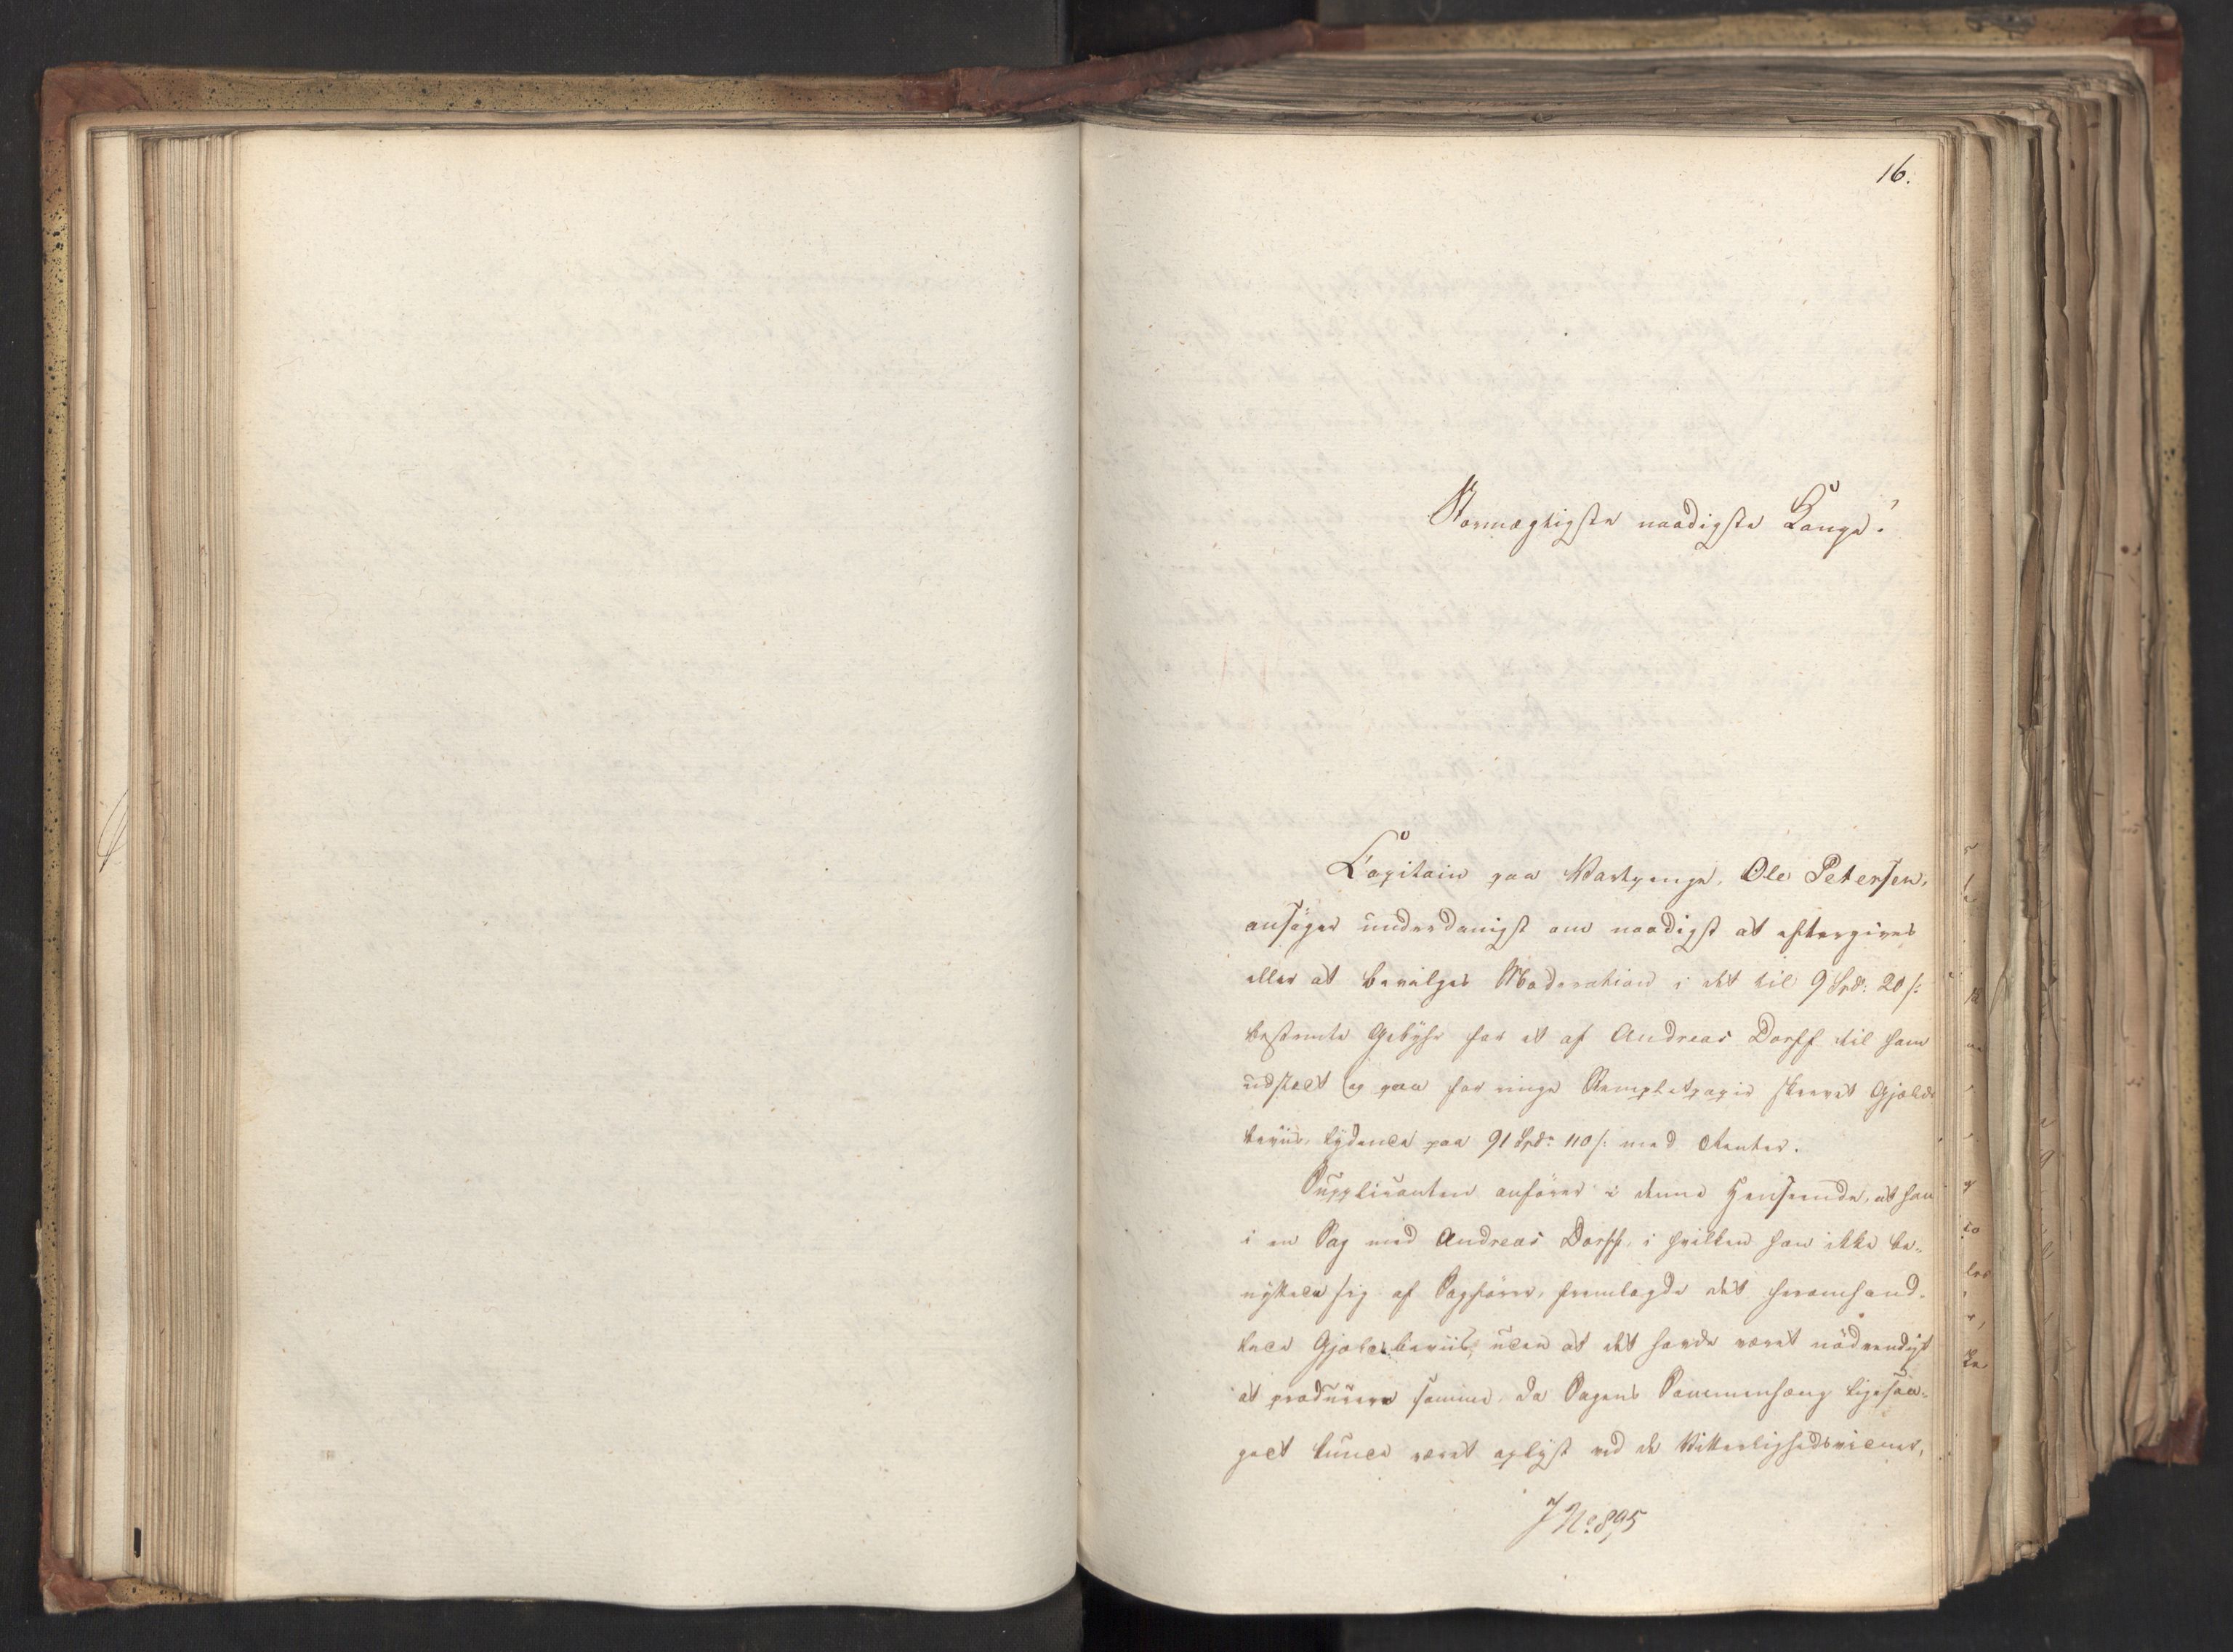 16.
Stormægtigste naadigste Konge!
Capitain paa Vartpenge, Ole Petersen,
ansøger underdanigst om naadigst at eftergives
eller at bevilges Moderation i det til 9 Spd: 20 s:
bestemte Gebyhr for et af Andreas Dorff til ham
udstedt og paa for ringe Stemplet papir skrevet Gjælds
beviis, lydende paa 91 Spdr 110 s: med Renter.
Supplicanten anfører i denne Henseende, at han
i en Sag mod Andreas Dorff, i hvilken han ikke be-
nyttede sig af Sagfører, fremlagde det heromhand-
lede Gjeldsbeviis, uden at det havde været nødvendigt
at producere samme, da Sagens Sammenhæng ligesaa-
godt kunde været oplyst ved de Vitterlighedsvidner,
J No. 895